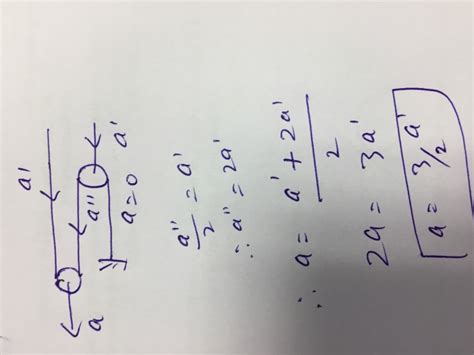 a'
a"
a'
a
a=0
a"/2 = a'
∴ a" = 2a'
∴ a = (a' + 2a')/2
2a = 3a'
a = 3/2 a'